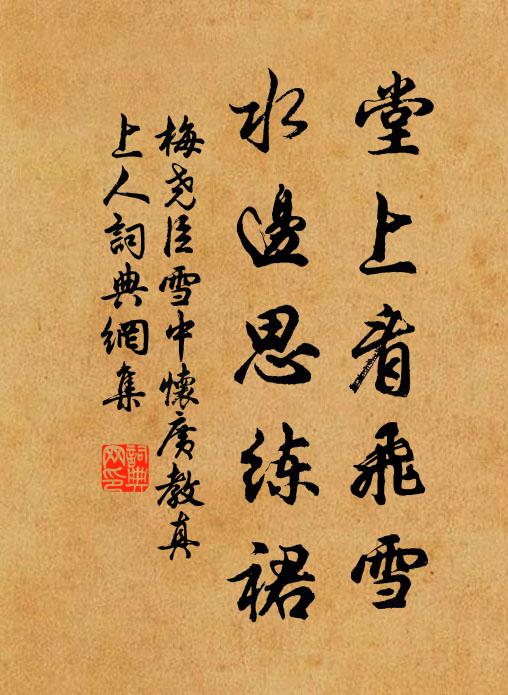 堂上看飛雪
水邊思练裙
梅尧臣雪中懷廣教真
上人詞典網集
詞典網印